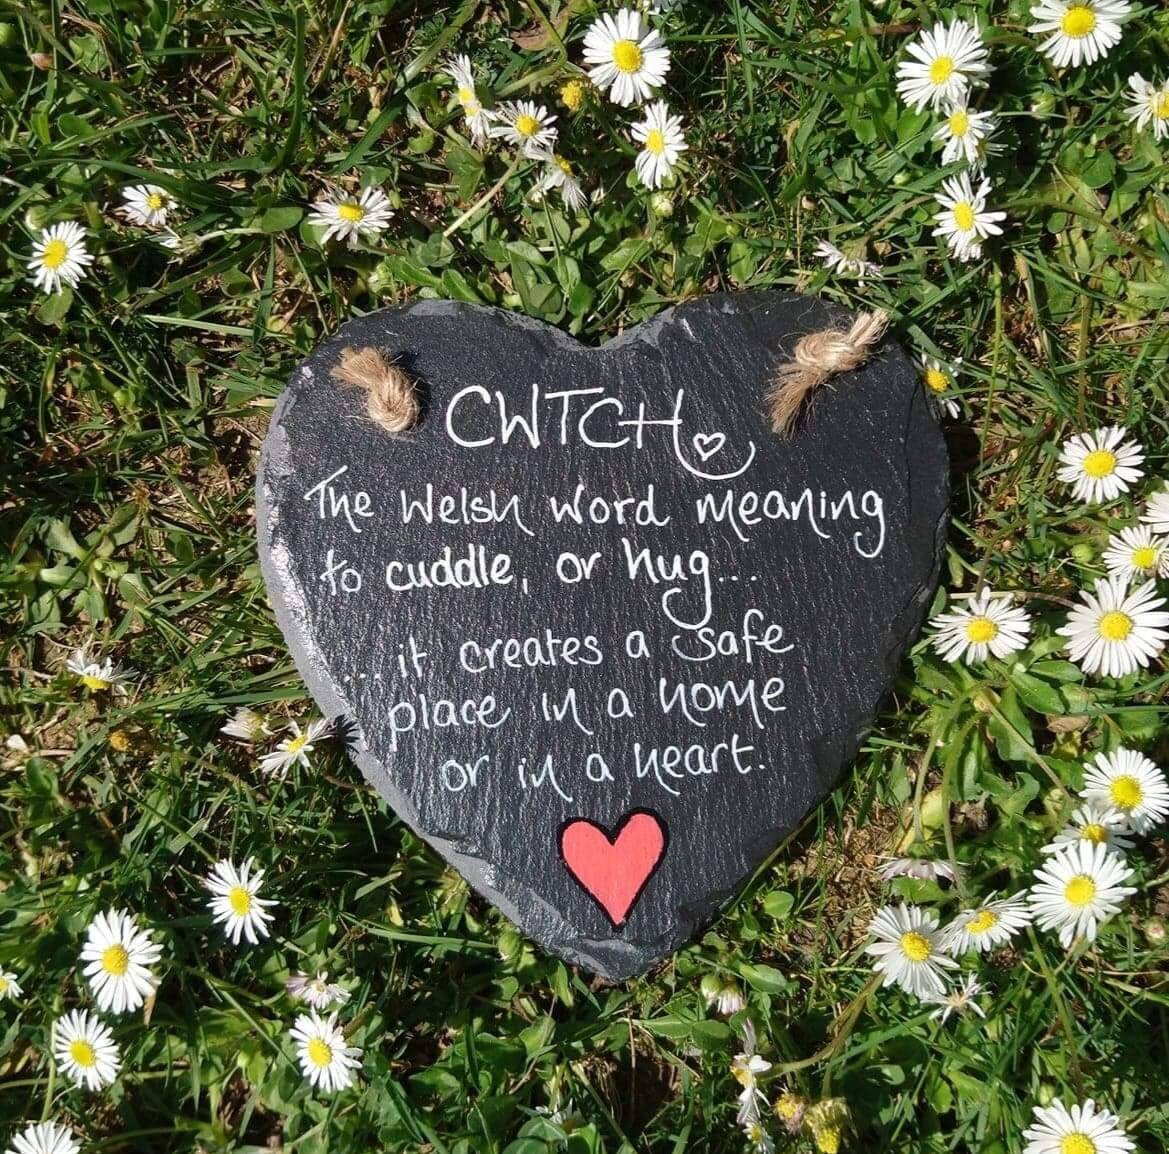 CWTCH
The Welsh word meaning
to cuddle, or hug...
...it creates a safe
place in a home
or in a heart.